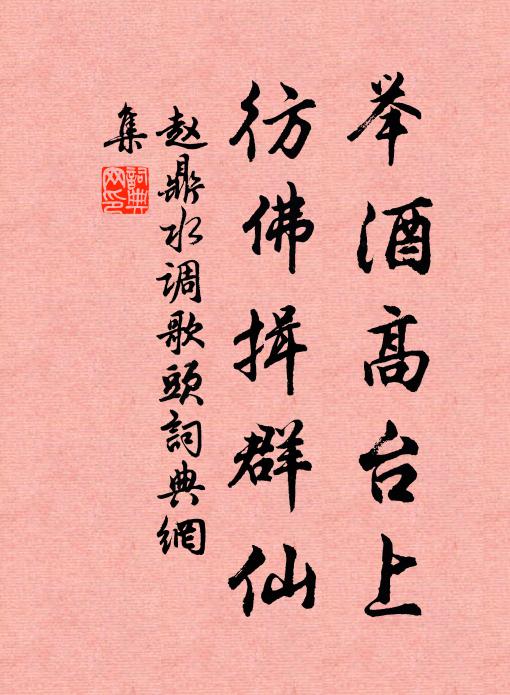 举酒高台上
彷佛揖群仙
赵鼎水调歌头詞典網
集
詞典网印